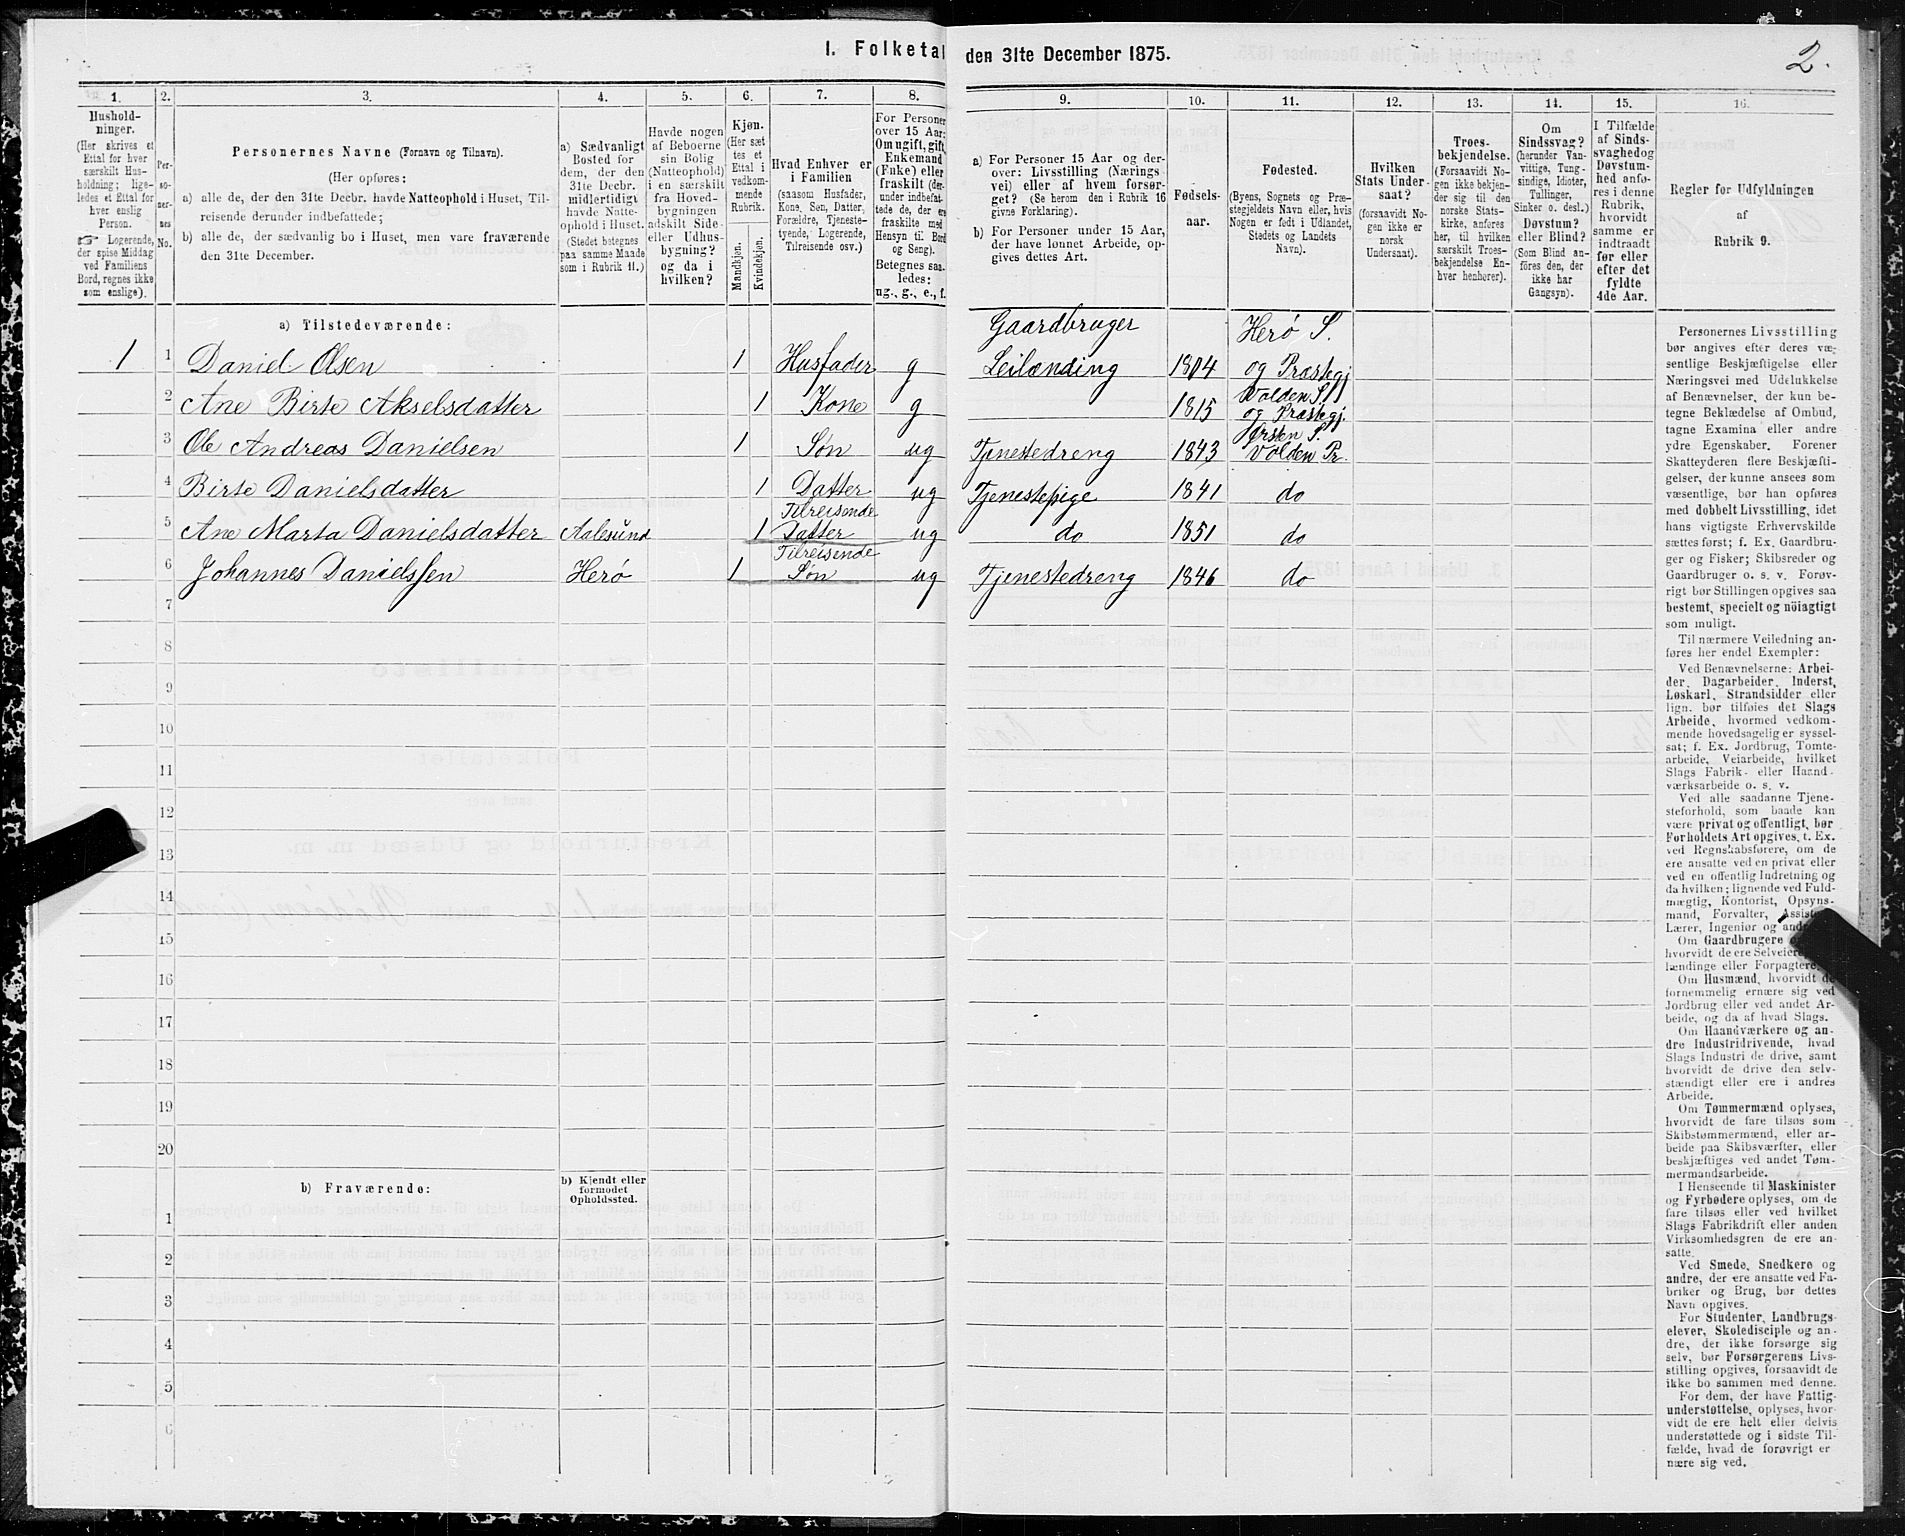 I. Folketal den 31te December 1875.
2.
1. 2. 3. 4. 5. 6. 7. 8. 9. 10. 11. 12. 13. 14. 15. 16.
Hushold-
ninger.
(Her skrives et
Ettal for hver
særskilt Hus-
holdning; lige-
ledes et Ettal for
hver enslig
Person.
☞ Logerende,
der spise Middag
ved Familiens
Bord, regnes ikke
som enslige).
Per-
so-
ner-
nes
No.
Personernes Navne (Fornavn og Tilnavn).
(Her opføres:
a) alle de, der den 31te Decbr. havde Natteophold i Huset, Til-
reisende derunder indbefattede;
b) alle de, der sædvanlig bo i Huset, men vare fraværende
den 31te December.
a) Sædvanligt
Bosted for
dem, der den
31te Decbr.
midlertidigt
havde Natte-
ophold i Huset.
(Stedet betegnes
paa samme Maade
som i Rubrik 11.)
Havde nogen
af Beboerne
sin Bolig
(Natteophold)
i en særskilt
fra Hoved-
bygningen
adskilt Side-
eller Udhus-
bygning?
og da i
hvilken?
Kjøn.
(Her sæt
tes et
Ettal i
vedkom-
mende
Rubrik.
Mandkjøn.
Kvindekjøn.
Hvad Enhver er
i Familien
(saasom Husfader,
Kone, Søn, Datter,
Forældre, Tjeneste-
tyende, Logerende,
Tilreisende osv.)
For Personer
over 15 Aar:
Om ugift, gift,
Enkemand
(Enke) eller
fraskilt (der-
under indbefat-
tede de, der ere
fraskilte med
Hensyn til Bord
og Seng).
Betegnes saa-
ledes:
ug., g., e., f.
a) For Personer 15 Aar og der-
over: Livsstilling (Nærings
vei) eller af hvem forsør-
get? (Se herom den i Rubrik 16
givne Forklaring).
b) For Personer under 15 Aar,
der have lønnet Arbeide, op-
gives dettes Art.
Fødsels-
aar.
Fødested.
(Byens, Sognets og Præ-
stegjeldets Navn eller, hvis
Nogen er født i Udlandet,
Stedets og Landets
Navn).
Hvilken
Stats Under-
saat?
(forsaavidt No-
gen ikke er
norsk
Undersaat).
Troes-
bekjendelse.
(Forsaavidt No-
gen ikke bekjen-
der sig til den
norske Stats-
kirke, anføres
her, til hvilken
særskilt Troes-
bekjendelse En-
hver henhører).
Om
Sindssvag?
(herunder Van-
vittige, Tung-
sindige, Idioter,
Tullinger,
Sinker o. desl.)
Døvstum?
eller Blind?
(Som Blind an-
føres den, der
ikke har
Gangsyn).
I Tilfælde
af Sinds-
svaghed og
Døvstum-
hed anfø-
res i denne
Rubrik,
hvorvidt
samme er
indtraadt
før eller
efter det
fyldte
4de Aar.
Regler for Udfyldningen
af
Rubrik 9.
a) Tilstedeværende:
Gaardbruger Herø S.
1 1 Daniel Olsen 1 Husfader g Leilænding 1804 og Præstegj
Volden S
2 Ane Birte Akselsdatter 1 Kone g 1815 og Præstegj.
Ørsten S.
3 Ole Andreas Danielsen 1 Søn ug Tjenestedreng 1843 Volden Pr.
4 Birte Danielsdatter 1 Datter ug Tjenestepige 1841 do
Tilreisende
5 Ane Marta Danielsdatter Aalesund 1 Datter ug do 1851 do
Tilreisende
6 Johannes Danielssen Herø 1 Søn ug Tjenestedreng 1846 do
7
8
9
10
11
12
13
14
15
16
17
18
19
20
b) Fraværende:
b) Kjendt eller
formodet
Opholdssted.
1
2
3
4
5
6
Personernes Livsstilling
bør angives efter deres væ-
sentlige Beskjæftigelse eller
Næringsvei med Udelukkelse
af Benævnelser, der kun be-
tegne Beklædelse af Ombud,
tagne Examina eller andre
ydre Egenskaber. Forener
Skatteyderen flere Beskjæfti-
gelser, der kunne ansees som
væsentlige, bør han opføres
med dobbelt Livsstilling, idet
hans vigtigste Erhvervskilde
sættes først; f. Ex. Gaardbru-
ger og Fisker; Skibsreder og
Gaardbruger o. s. v. Forøv-
rigt bør Stillingen opgives saa
bestemt, specielt og nöiagtigt
som muligt.
Til nærmere Veiledning an-
føres her endel Exempler:
Ved Benævnelserne: Arbei-
der, Dagarbeider, Inderst,
Løskarl, Strandsidder eller
lign. bør tilføies det Slags
Arbeide, hvormed vedkom-
mende hovedsagelig er syssel-
sat; f. Ex. Jordbrug, Tomte-
arbeide, Veiarbeide, hvilket
Slags Fabrik- eller Haand-
værksarbeide o. s. v.
Ved alle saadanne Tjene-
steforhold, som baade kan
være privat og offentligt, bør
Forholdets Art opgives, t. Ex.
ved Regnskabsførere, om de
ere ansatte ved en privat eller
ved en offentlig Indretning og
da hvilken; lignende ved Fuld-
mægtig, Kontorist, Opsyns-
mand, Forvalter,
Lærer, Ingeniør og
Om Gaardbrugere
hvorvidt de ere
lændinge eller
Om Husmænd, hvorvidt de
fornemmelig ernære sig ved
Jordbrug eller ved andet Ar-
beide, og da af hvad Slags.
Om Haandværkere og an-
dre Industridrivende, hvad
Slags Industri de drive, samt
hvorvidt de drive den selv-
stændigt eller ere i andres
Arbeide.
Om Tømmermænd oplyses,
hvorvidt de fare tilsøs som
Skibstømmermænd, eller ar-
beide paa Skibsværfter, eller
beskjæftiges ved andet Tøm-
mermandsarbeide.
I Henseende til Maskinister
og Fyrbødere oplyses, om de
fare tilsøs eller ved hvilket
Slags Fabrikdrift eller anden
Virksomhedsgren de ere an-
satte.
Ved Smede, Snedkere og
andre, der ere ansatte ved Fa-
briker og Brug, bør dettes
Navn opgives.
For Studenter, Landbrugs-
elever, Skoledisciple og an-
dre, der ikke forsørge sig
selv, bør Forsørgerens Livs-
stilling opgives, forsaavidt de
ikke bo sammen med denne.
For dem, der have Fattig-
understøttelse, oplyses, hvor-
vidt de ere helt eller delvis
understøttede og i sidste Til-
fælde, hvad de forøvrigt er
nære sig ved.